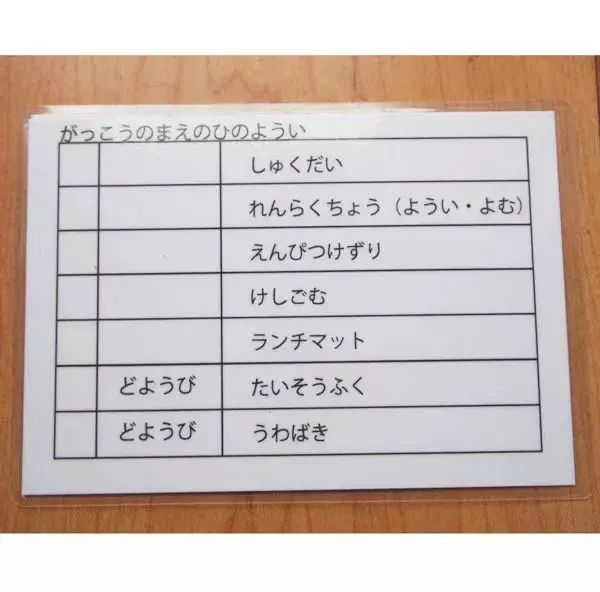 がっこうのまえのひのようい
しゅくだい
れんらくちょう（ようい・よむ）
えんぴつけずり
けしごむ
ランチマット
どようび たいそうふく
どようび うわばき